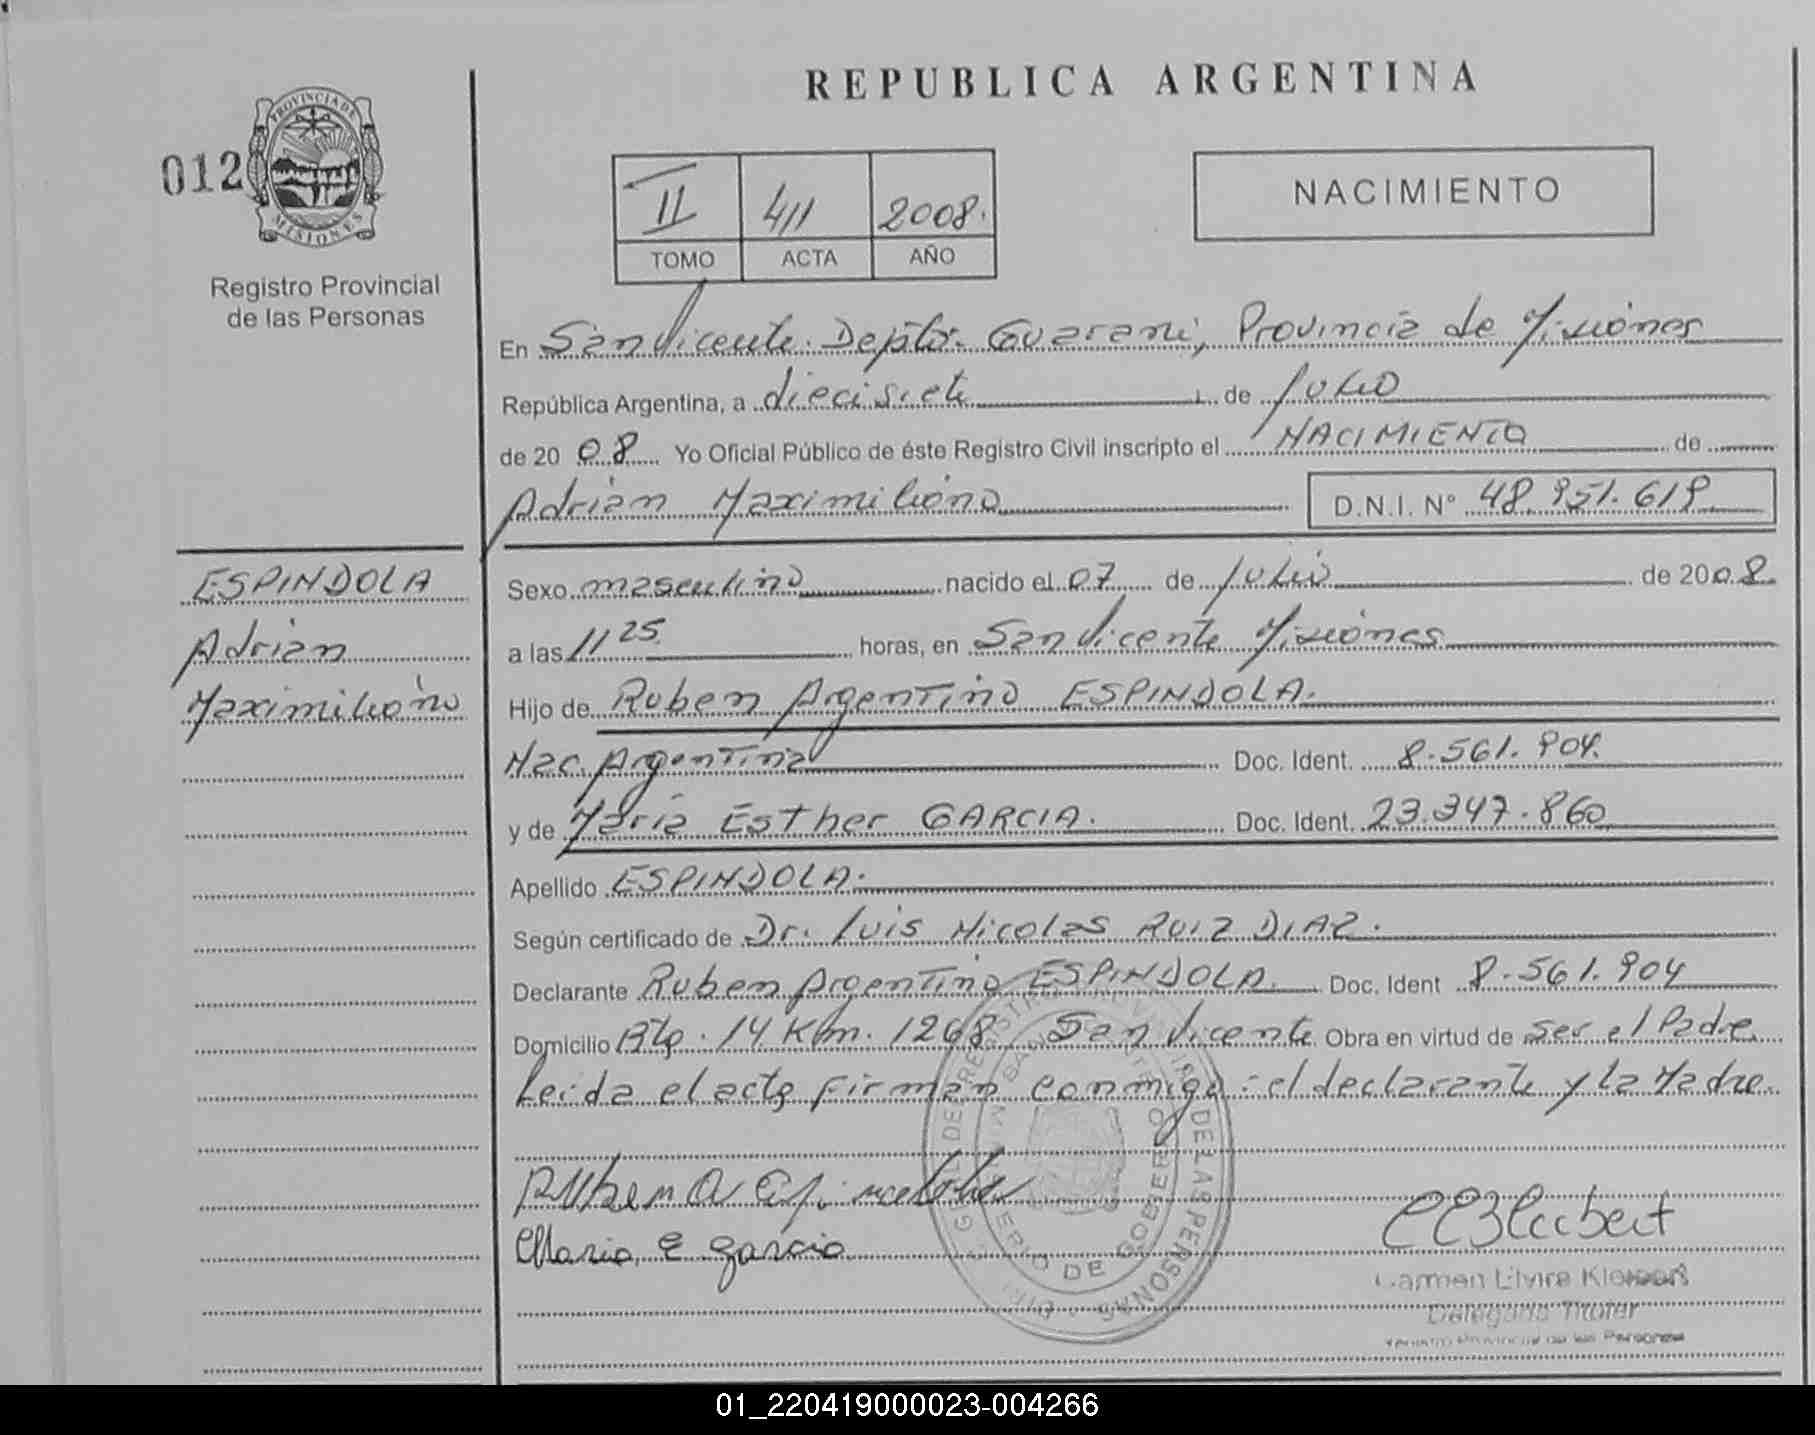 REPUBLICA ARGENTINA
012
PROVINCIA DE
MISIONES
Registro Provincial
de las Personas
II 411 2008.
TOMO ACTA AÑO
NACIMIENTO
En San Vicente. Depto. Guarani, Provincia de Misiones
República Argentina, a diecisiete de Julio
de 2008 Yo Oficial Público de éste Registro Civil inscripto el NACIMIENTO de
Adrian Maximiliano D.N.I. N° 48.951.619
ESPINDOLA
Adrian
Maximiliano
Sexo masculino nacido el 07 de Julio de 2008.
a las 11 25. horas, en San Vicente Misiones
Hijo de Ruben Argentino ESPINDOLA.
Nac. Argentina Doc. Ident. 8.561.904.
y de Maria Esther GARCIA. Doc. Ident. 23.347.860
Apellido ESPINDOLA.
Según certificado de Dr. Luis Nicolas RUIZ DIAZ.
Declarante Ruben Argentino ESPINDOLA. Doc. Ident 8.561.904
Domicilio Rta. 14 Km. 1268 San Vicente Obra en virtud de ser el Padre
Leida el acta firman conmigo: el declarante y la Madre.
Ruben A Espindola
Maria E garcia
DE LAS PERSONAS
DE GOBIERNO
Carmen
Delegada Titular
Registro Provincial de las Personas
01_220419000023-004266